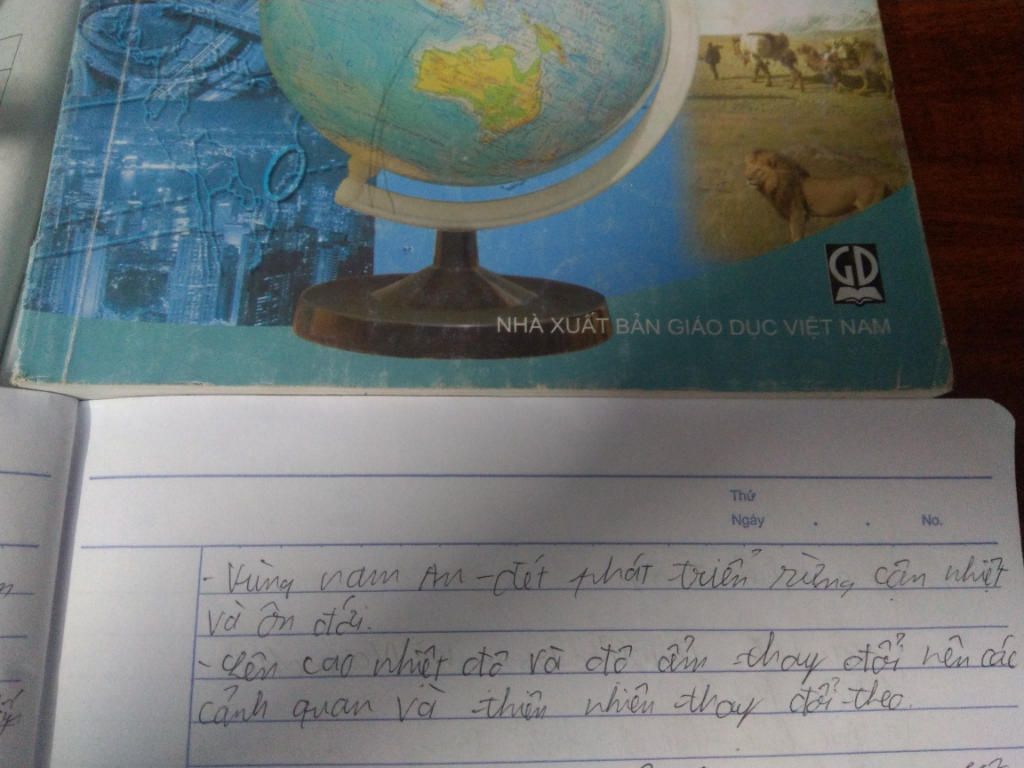 GD
NHÀ XUẤT BẢN GIÁO DỤC VIỆT NAM
Thứ
Ngày . . No.
- Vùng nam An-đét phát triển rừng cận nhiệt
và ôn đới.
- Lên cao nhiệt độ và độ ẩm thay đổi nên các
cảnh quan và thiên nhiên thay đổi theo.